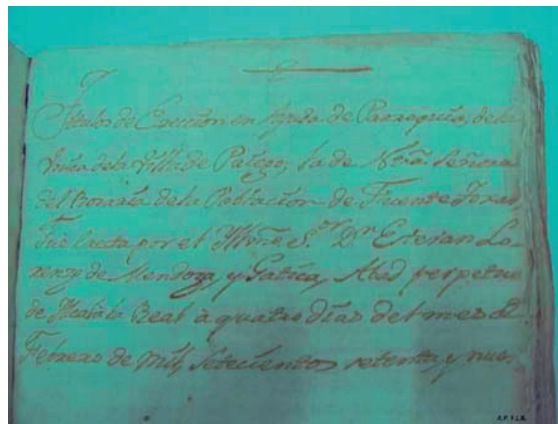 Titulos de Ereccion en Ayuda de Parroquia, de la
Unica de la Villa de Priego, la de Ntra. Señora
del Rosario de la Poblacion de Fuente Toxar
Fue Erecta por el Yltmo. S.or D.n Estevan Lo-
renzo de Mendoza, y Gatica, Abad perpetuo
de Alcala la Real à quatro dias del mes de
Febrero de mil, setecientos, setenta, y nuev